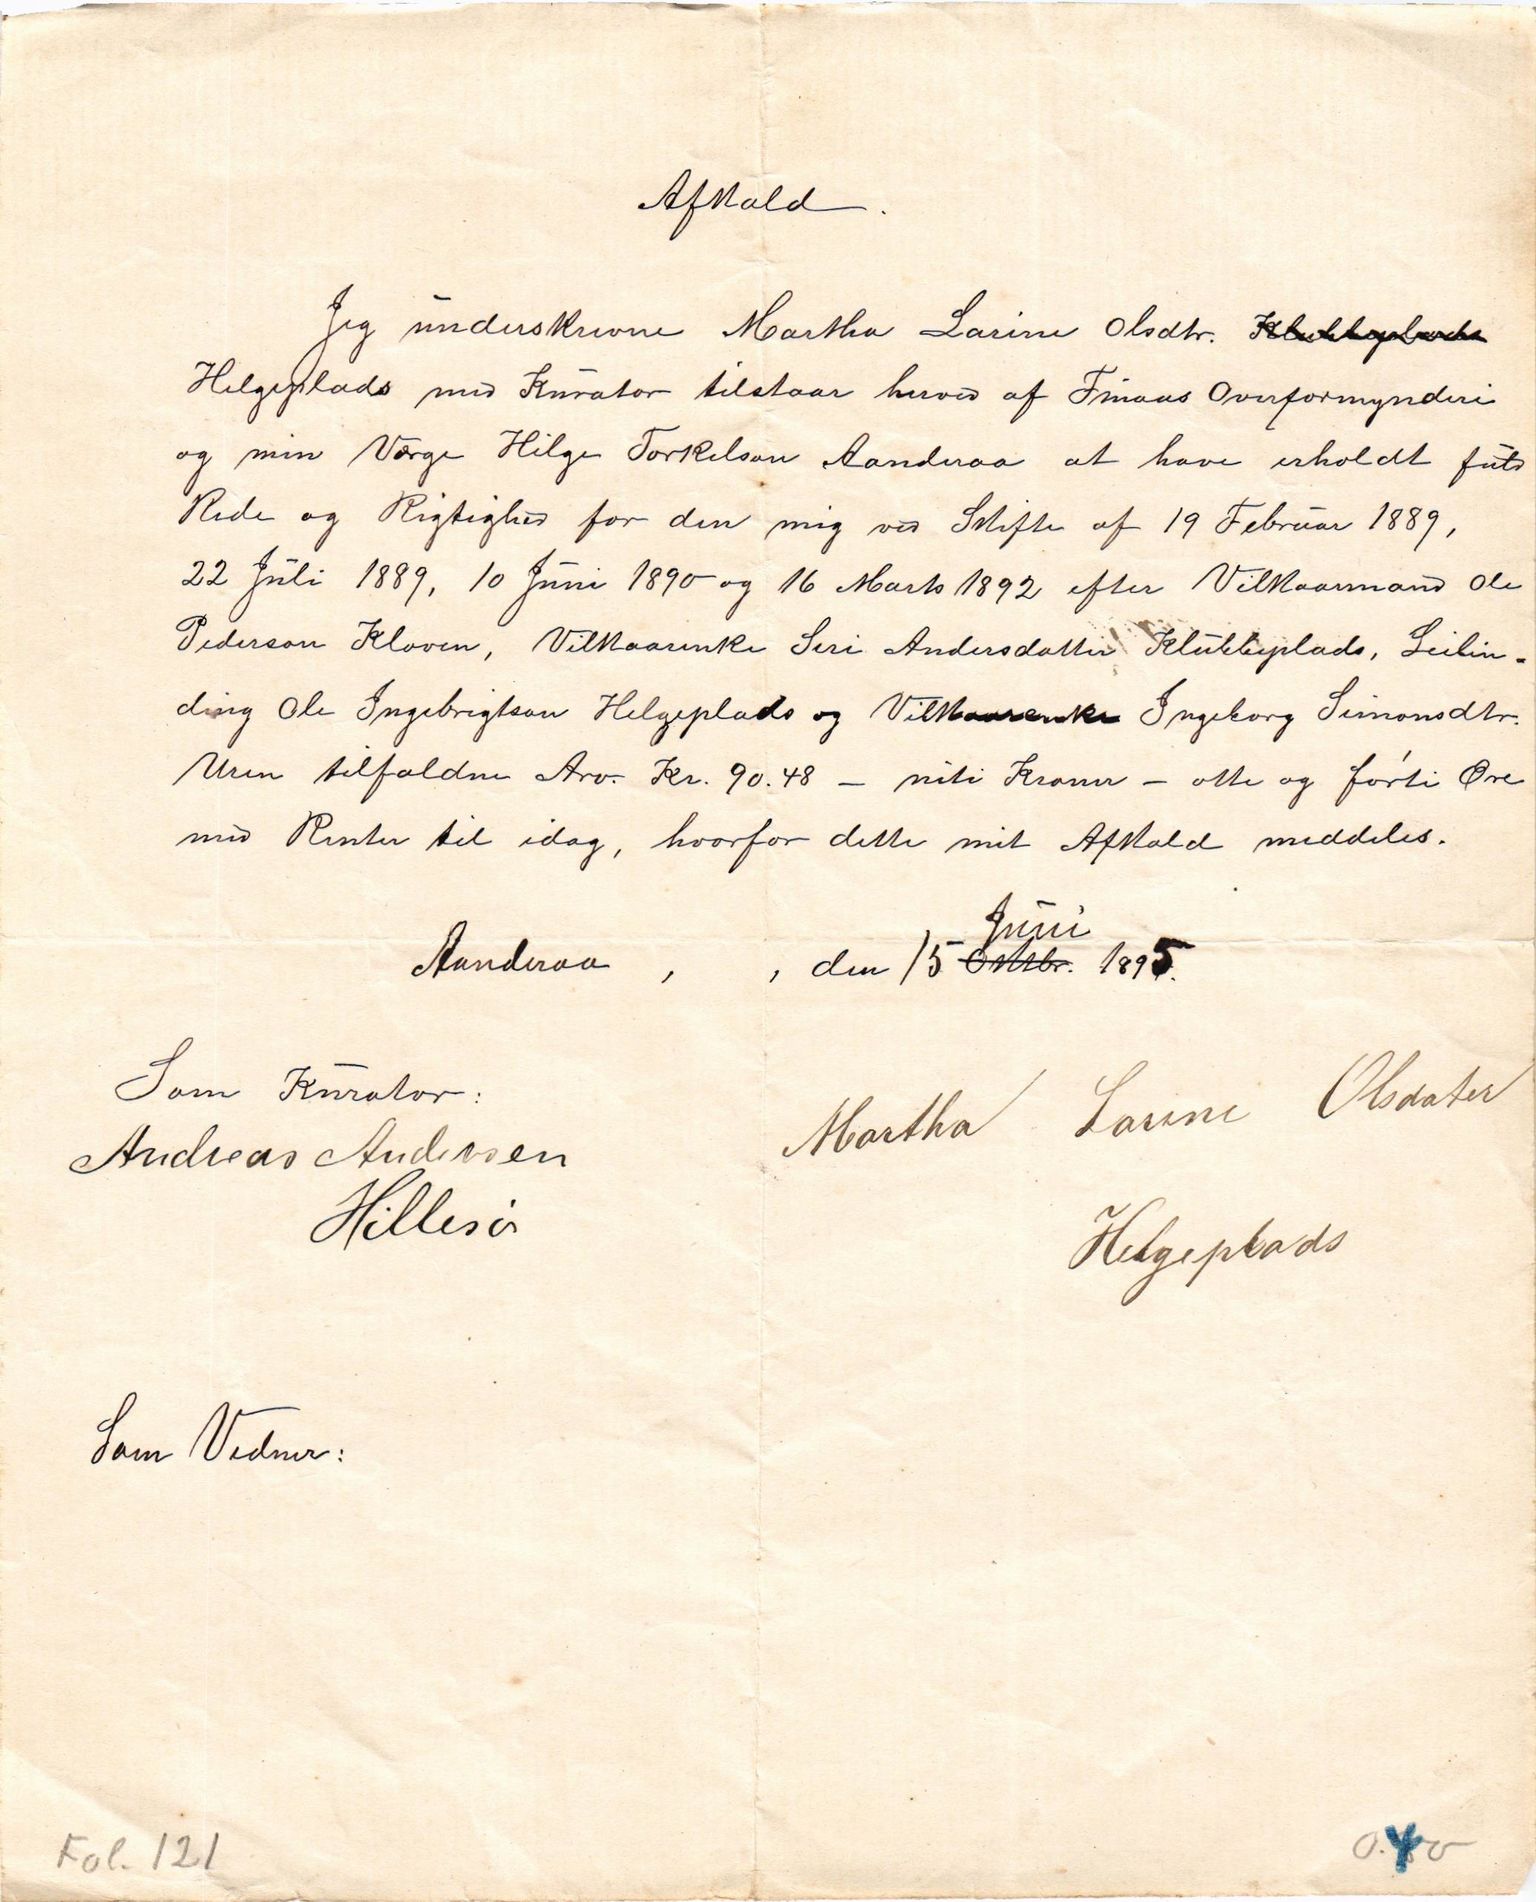 Afkald.
Jeg underskrevne Martha Larine Olsdtr. Klubbeplads
Helgeplads med Kurator tilstaar herved af Finaas Overformynderi
og min Værge Helge Torkelson Aanderaa at have erholdt fuld
Rede og Rigtighed for den mig ved Skifte af 19 Februar 1889,
22 Juli 1889, 10 Juni 1890 og 16 Marts 1892 efter Vilkaarmand Ole
Pederson Kloven, Vilkaarenke Seri Andersdatter Klubbeplads, Leilin-
ding Ole Ingebrigtson Helgeplads og Vilkaarenke Ingeborg Simonsdtr.
Uren tilfaldne Arv. Kr. 90.48 – niti Kroner – otte og førti Øre
med Renter til idag, hvorfor dette mit Afkald meddeles.
Juni
Aanderaa , , den 15 Oktbr. 1895.
Som Kurator:
Andreas Andersen
Hillesø
Martha Larine Olsdater
Helgeplads
Som Vidner:
Fol. 121